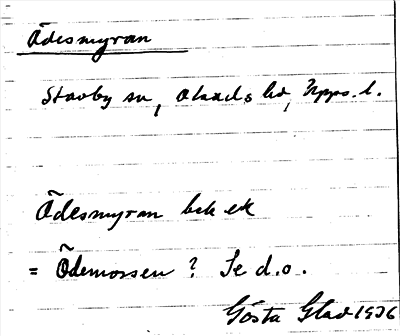 Ödesmyran
Stavby sn, Olands hd, Upps. l.
Ödesmyran bek ek
= Ödemossen? Se d.o.
Gösta Glad 1936